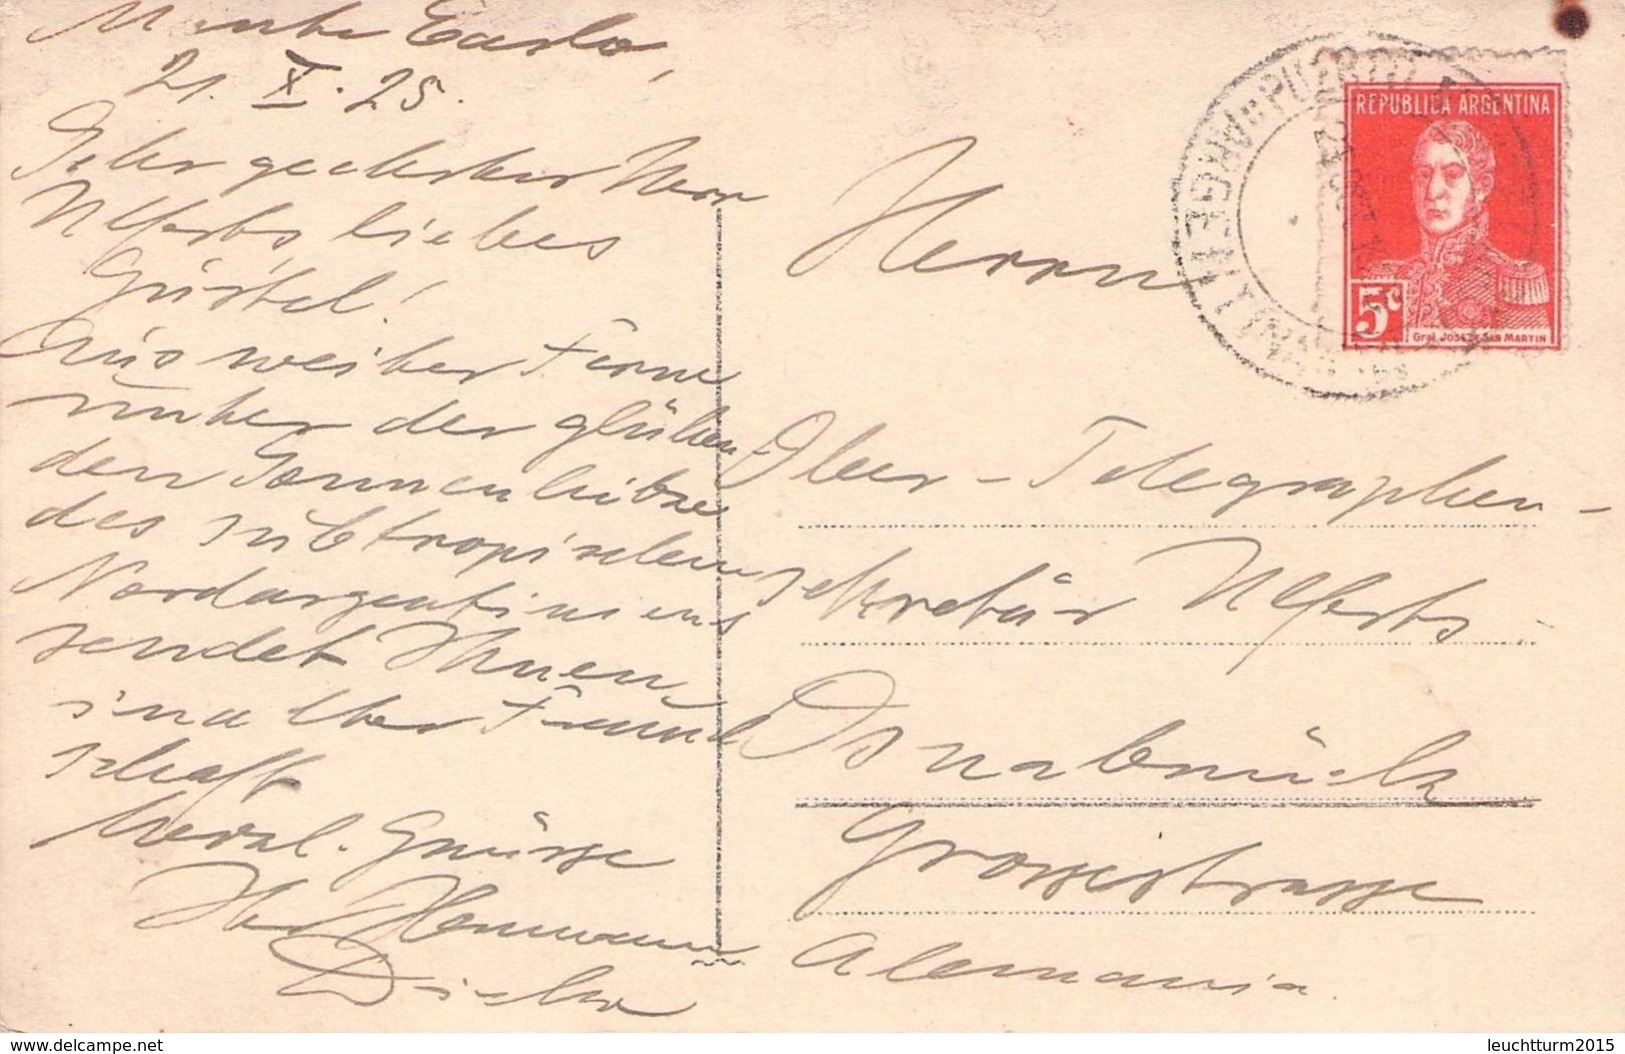 Monte Carlo,
21. X. 25.
Sehr geehrter Herr
Ulferts, liebes
Gürtel!
Aus weiter Ferne
unter der glühen
den Sonnenhitze
des subtropischen
Nordargentiniens
sendet Ihnen
in alter Freund
schaft
Grüsse
Ihr Hermann
REPUBLICA ARGENTINA
5c
Gral José de San Martin
Herrn
Ober-Telegraphen-
sekretär Ulferts
Osnabrück
Grossestrasse
Alemania
delcampe.net
leuchtturm2015